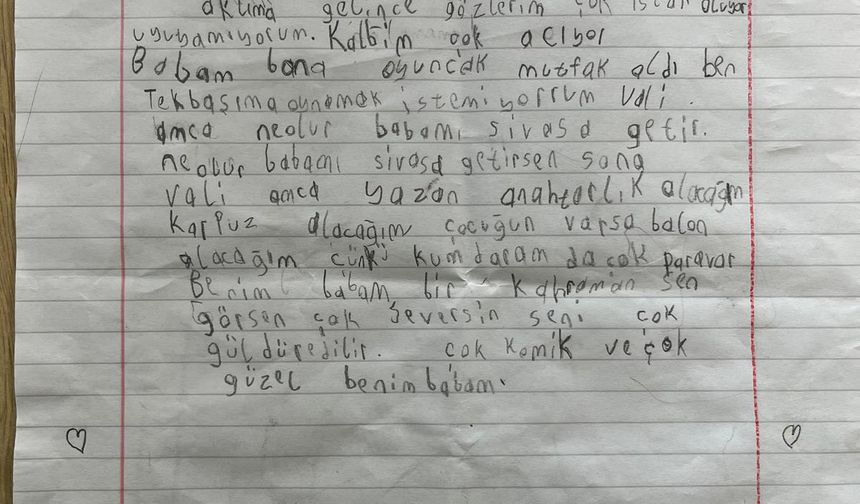 aklıma gelince gözlerim çok ıslak oluyor
uyuyamıyorum. Kalbim çok acıyor
Babam bana oyuncak mutfak aldı ben
Tekbaşıma oynamak istemiyorrum Vali.
amca neolur babamı sivasa getir.
neolur babamı sivasa getirsen sana
vali amca yazan anahtarlık alacağım
Karpuz alacağım çocuğun varsa balon
alacağım çünkü kumdaram da çok paravar
Benim babam bir kahraman sen
görsen çok seversin seni çok
güldürebilir. çok komik ve çok
güzel benim babam.